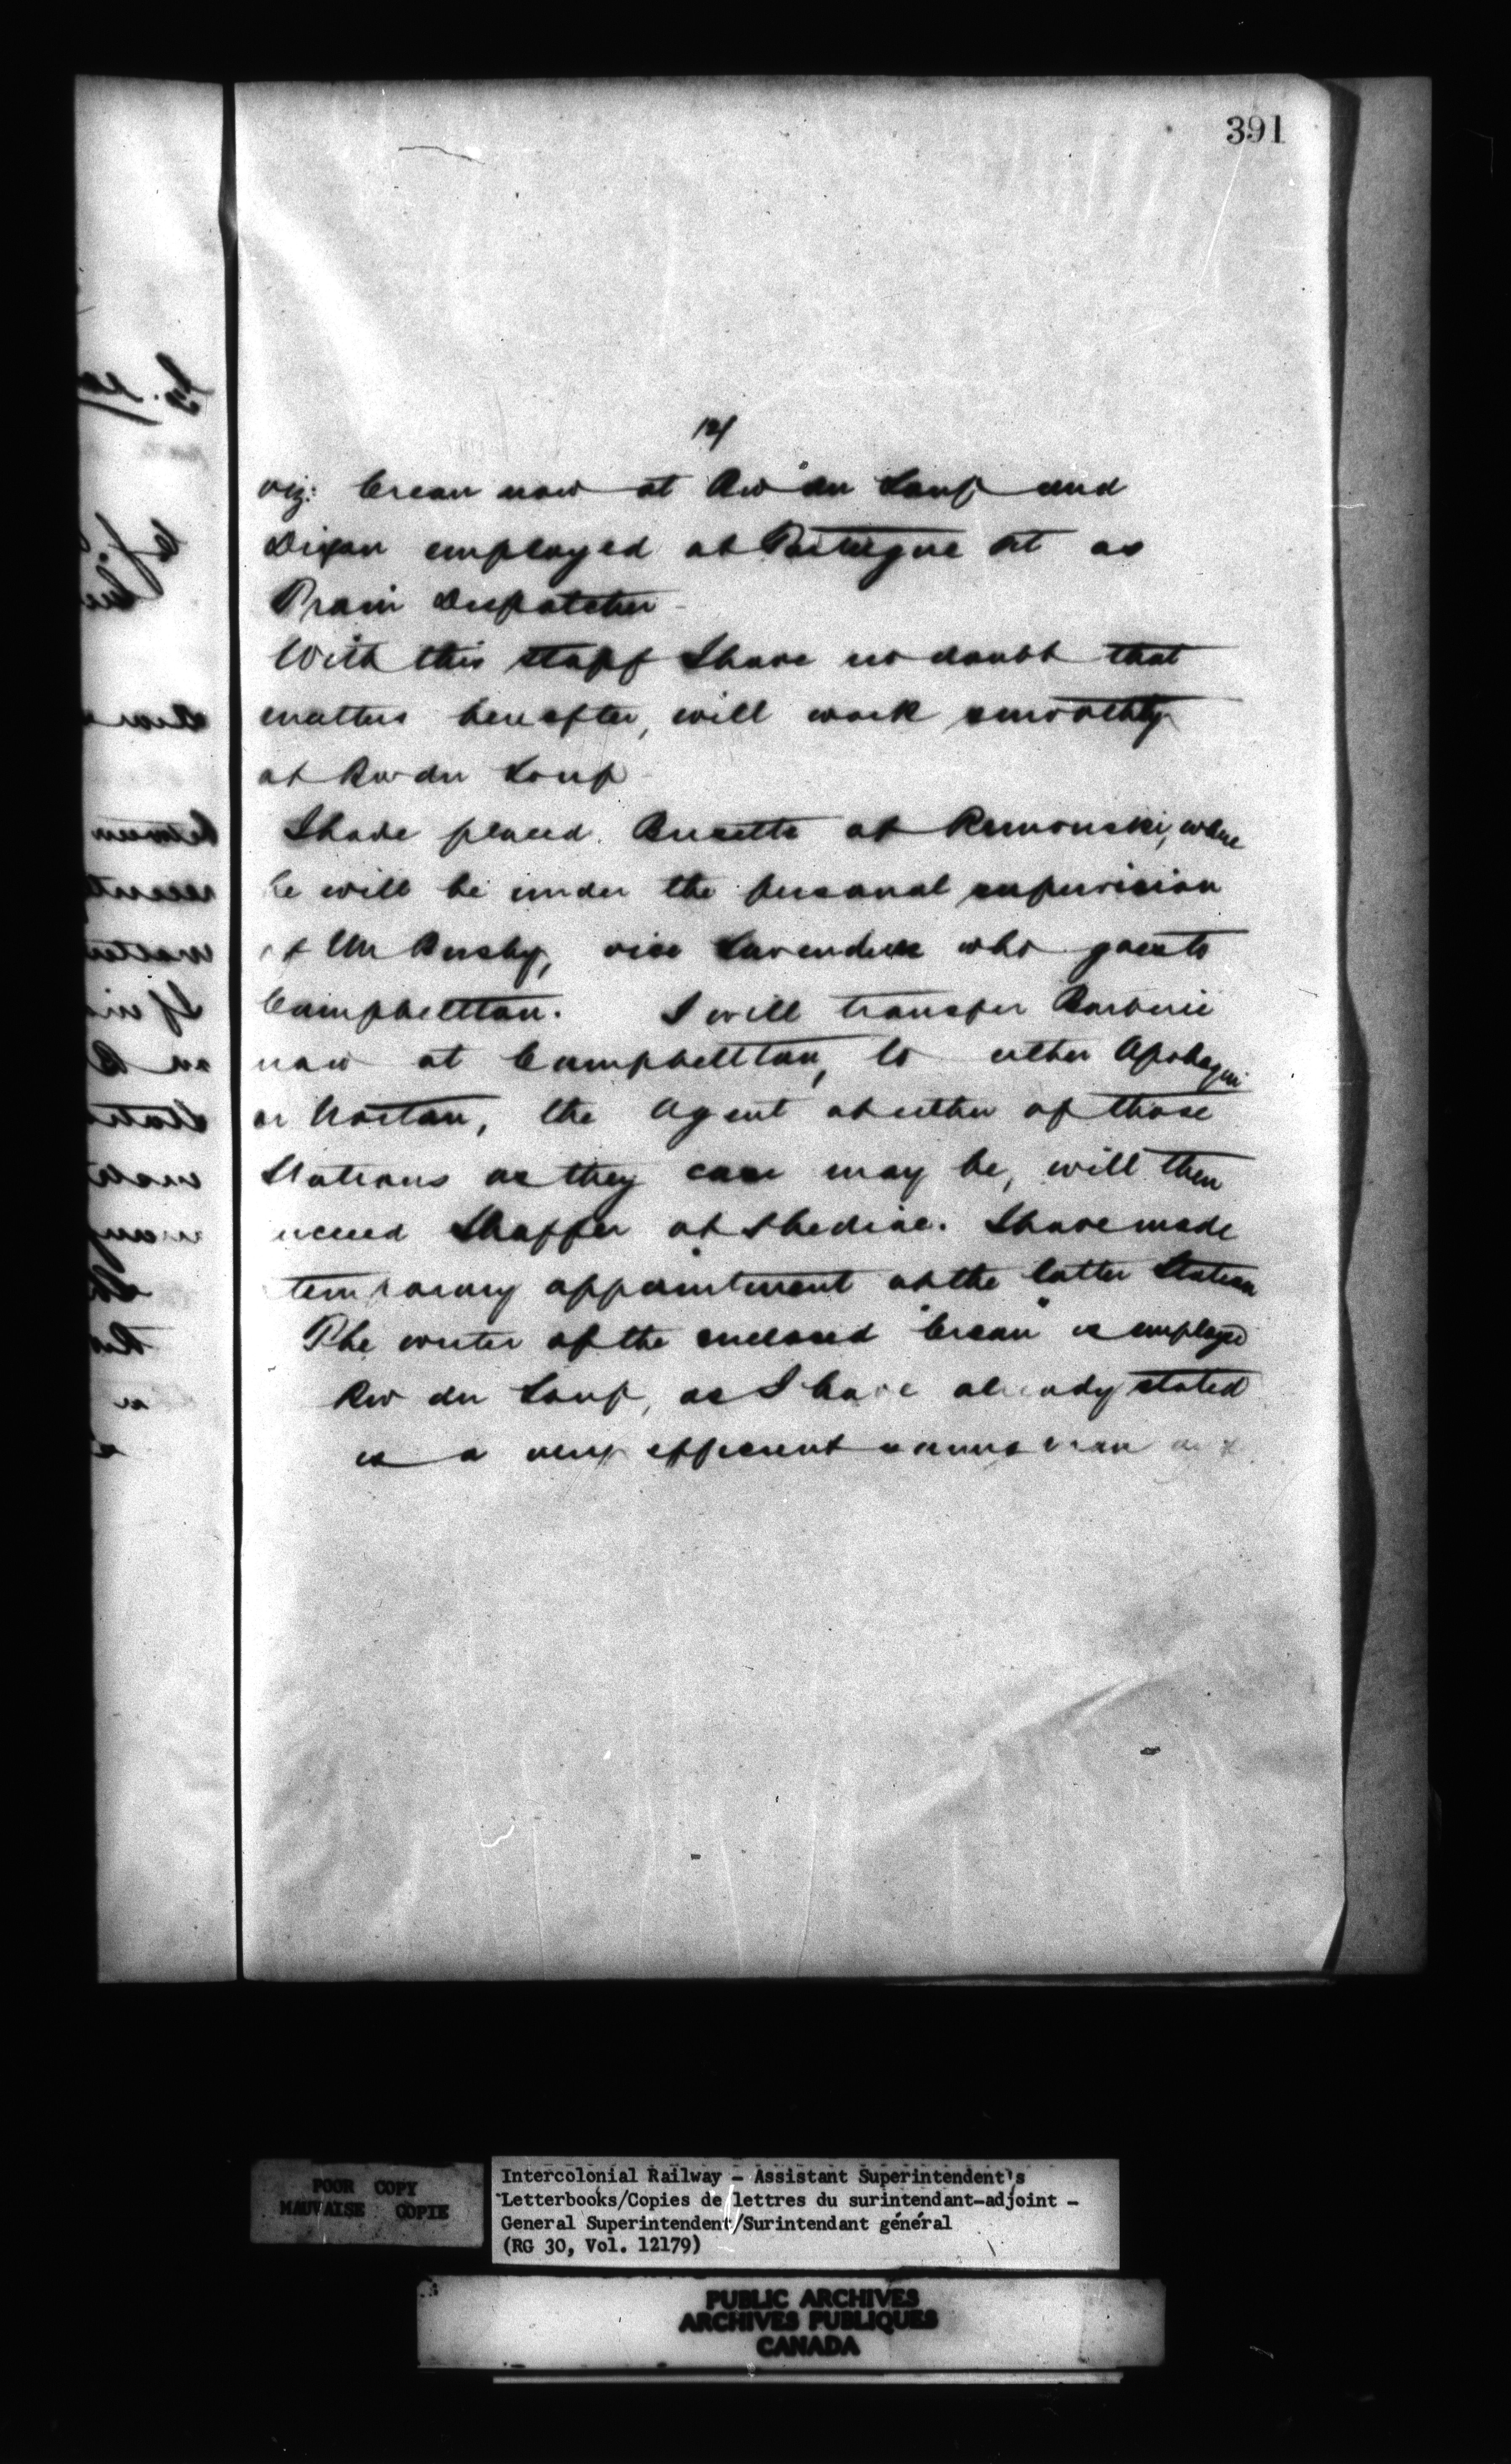 391
viz: Crean now at Riv du Loup and
Dixon employed at Pt as
Train Dispatcher
With this staff I have no doubt that
matters hereafter, will work smoothly
at Riv du Loup
I have placed at Rimouski, where
he will be under the personal supervision
of Mr Busby, vice who goes to
Campbellton. I will transfer Barberie
now at Campbellton, to either Apohaqui
or Norton, the Agent at either of those
Stations as they case may be, will then
succeed Shaffer at Shediac. I have made
temporary appointment at the latter Station
The writer of the enclosed "Crean" is employed
Riv du Loup, as I have already stated
is a very efficient man
POOR COPY
MAUVAISE COPIE
Intercolonial Railway - Assistant Superintendent's
Letterbooks/Copies de lettres du surintendant-adjoint -
General Superintendent/Surintendant général
(RG 30, Vol. 12179)
PUBLIC ARCHIVES
ARCHIVES PUBLIQUES
CANADA